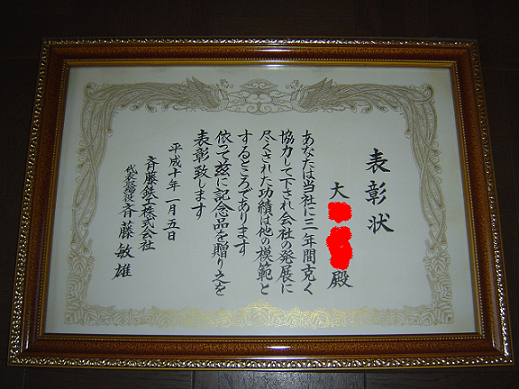 表彰状
大 殿
あなたは当社に三年間克く
協力して下され会社の発展に
尽くされた功績は他の模範と
するところであります
依って茲に記念品を贈り之を
表彰致します
平成十年一月五日
斉藤鉄工株式会社
代表取締役 斉藤敏雄